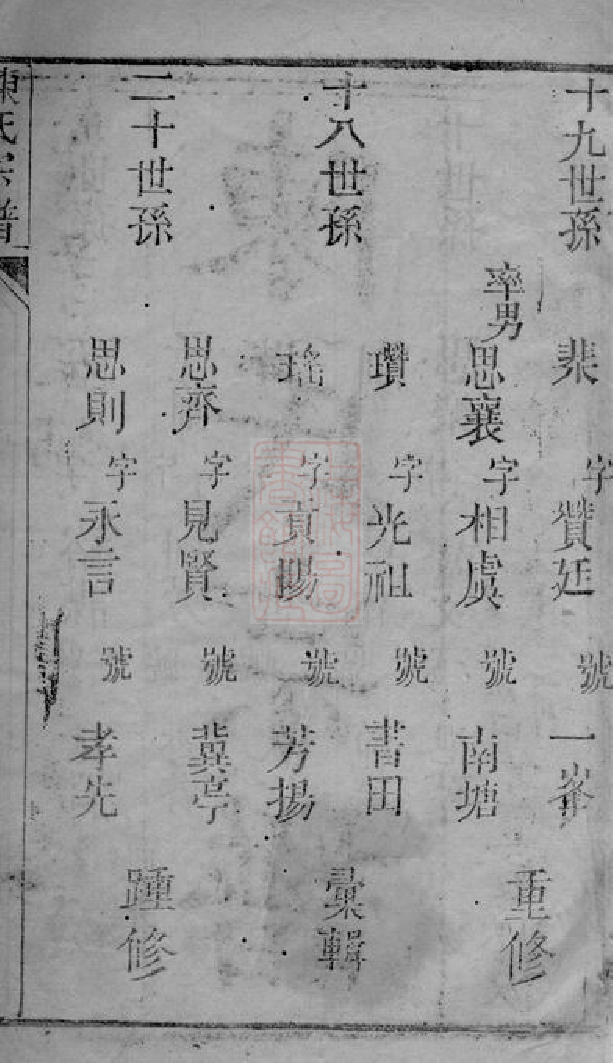 十九世孫
棐 字 贊廷 號 一峯
率男 思襄 字 相虞 號 南塘
重修
十八世孫
瓚 字 光祖 號 書田
瑤 字 貢揚 號 芳揚
彙輯
二十世孫
思齊 字 見賢 號 冀亭
思則 字 永言 號 孝先
踵修
陳氏宗譜